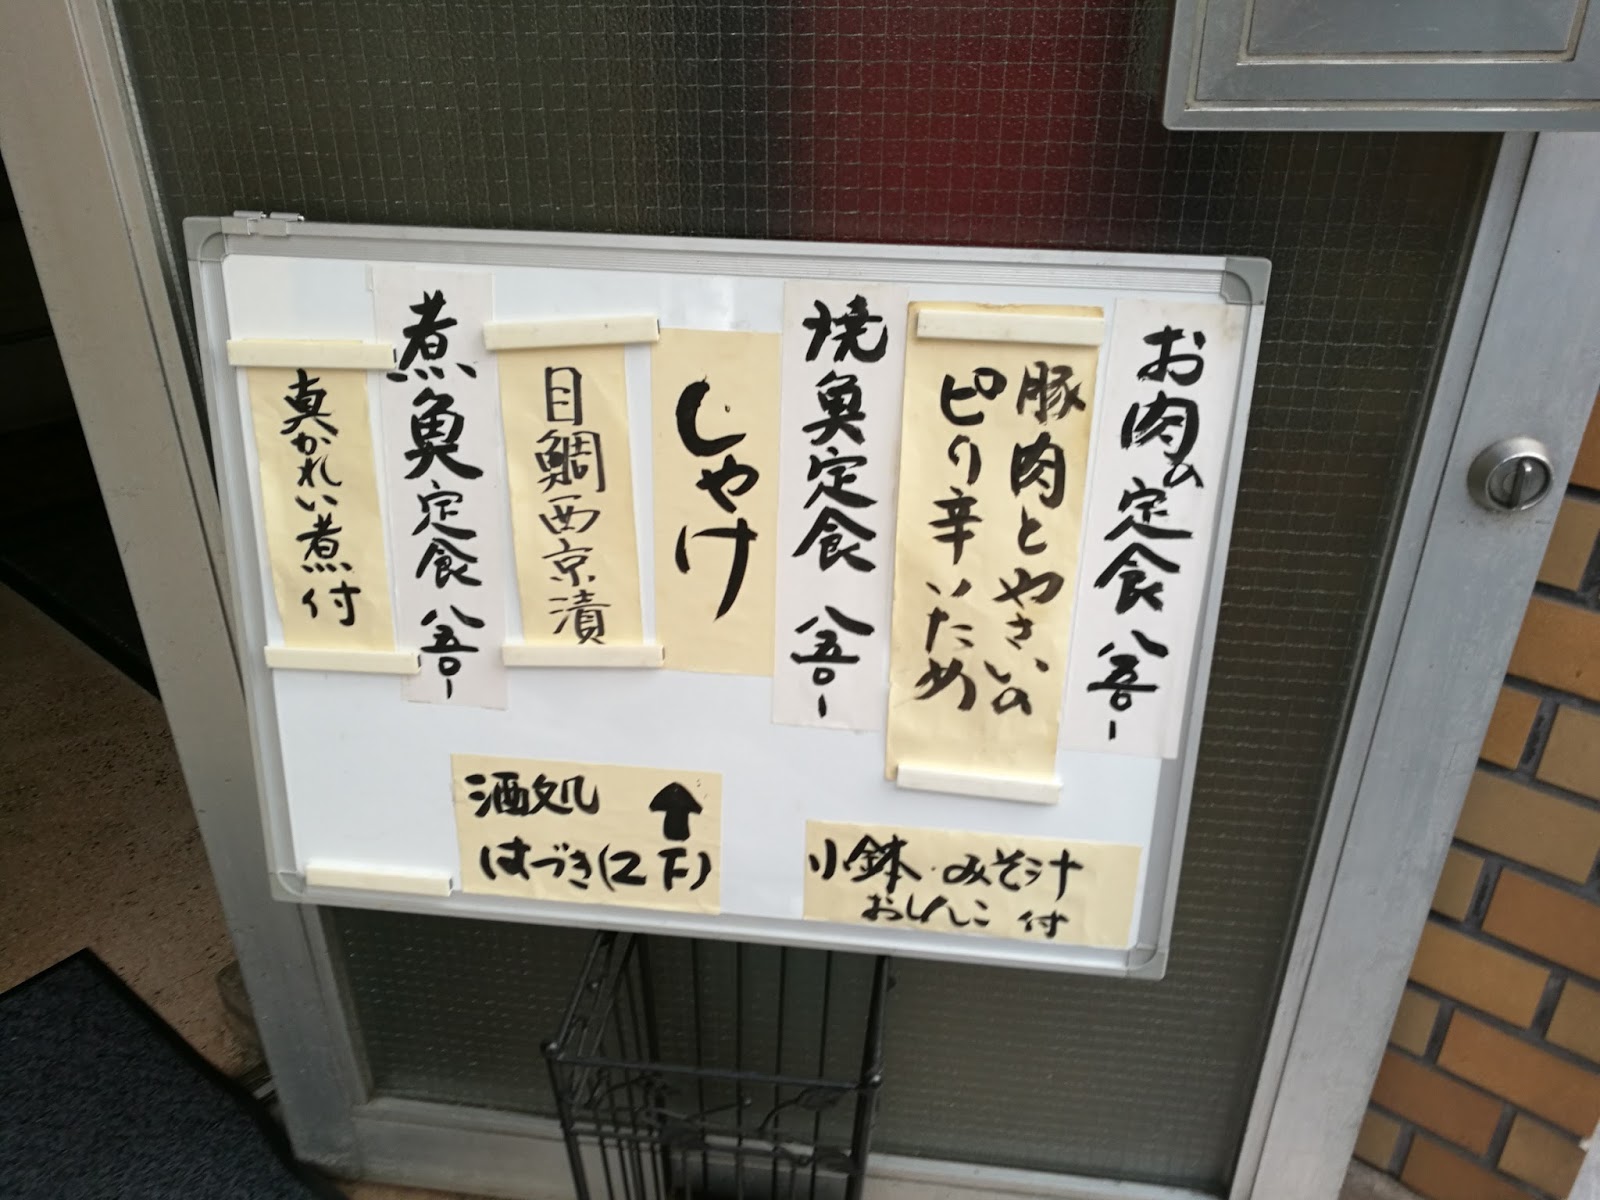 お肉の定食 八五〇ー
豚肉とやさいの
ピリ辛いため
焼魚定食 八五〇ー
しゃけ
目鯛西京漬
煮魚定食 八五〇ー
真かれい煮付
小鉢・みそ汁
おしんこ 付
酒処
はづき(2F)
↑